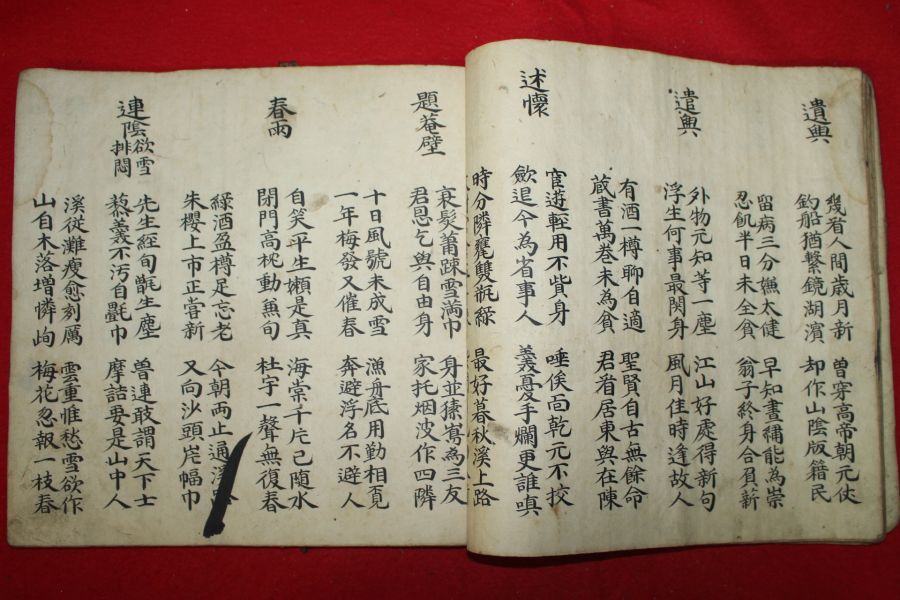 遺興
幾看人間歲月新 曽穿高帝朝元伎
釣船猶繫鏡湖濱 却作山陰版籍民
留病三分嫌太健 早知晝繡能為祟
忍飢半日未全貧 翁子終身合負薪
遣興
外物元知等一塵 江山好處得新句
浮生何事最関身 風月佳時逢故人
有酒一樽聊自適 聖賢自古無餘命
蔵書萬巻未為貧 君看居東與在陳
述懷
宦遊輕用不貲身 唾俟面乾元不挍
斂退今為省事人 羹憂手爛更誰嗔
時分隣甕雙瓶綠 最好暮秋溪上路
題菴壁
衰髮蕭踈雪滿巾 身並猿為三友
君恩乞與自由身 家托烟波作四隣
十日風號未成雪 漁舟底用勤相覔
一年梅發又催春 奔避浮名不避人
春雨
自笑平生嬾是真 海棠千片已隨水
閉門高枕動兼旬 杜宇一聲無復春
綠酒盈樽足忘老 今朝雨止通溪
朱櫻上市正嘗新 又向沙頭岸幅巾
連陰欲雪排悶
先生經旬甑生塵 曽連敢謂天下士
藜羹不汚自氎巾 摩詰要是山中人
溪從灘瘦愈刻厲 雲重惟愁雪欲作
山自木落增憐峋 梅花忍報一枝春